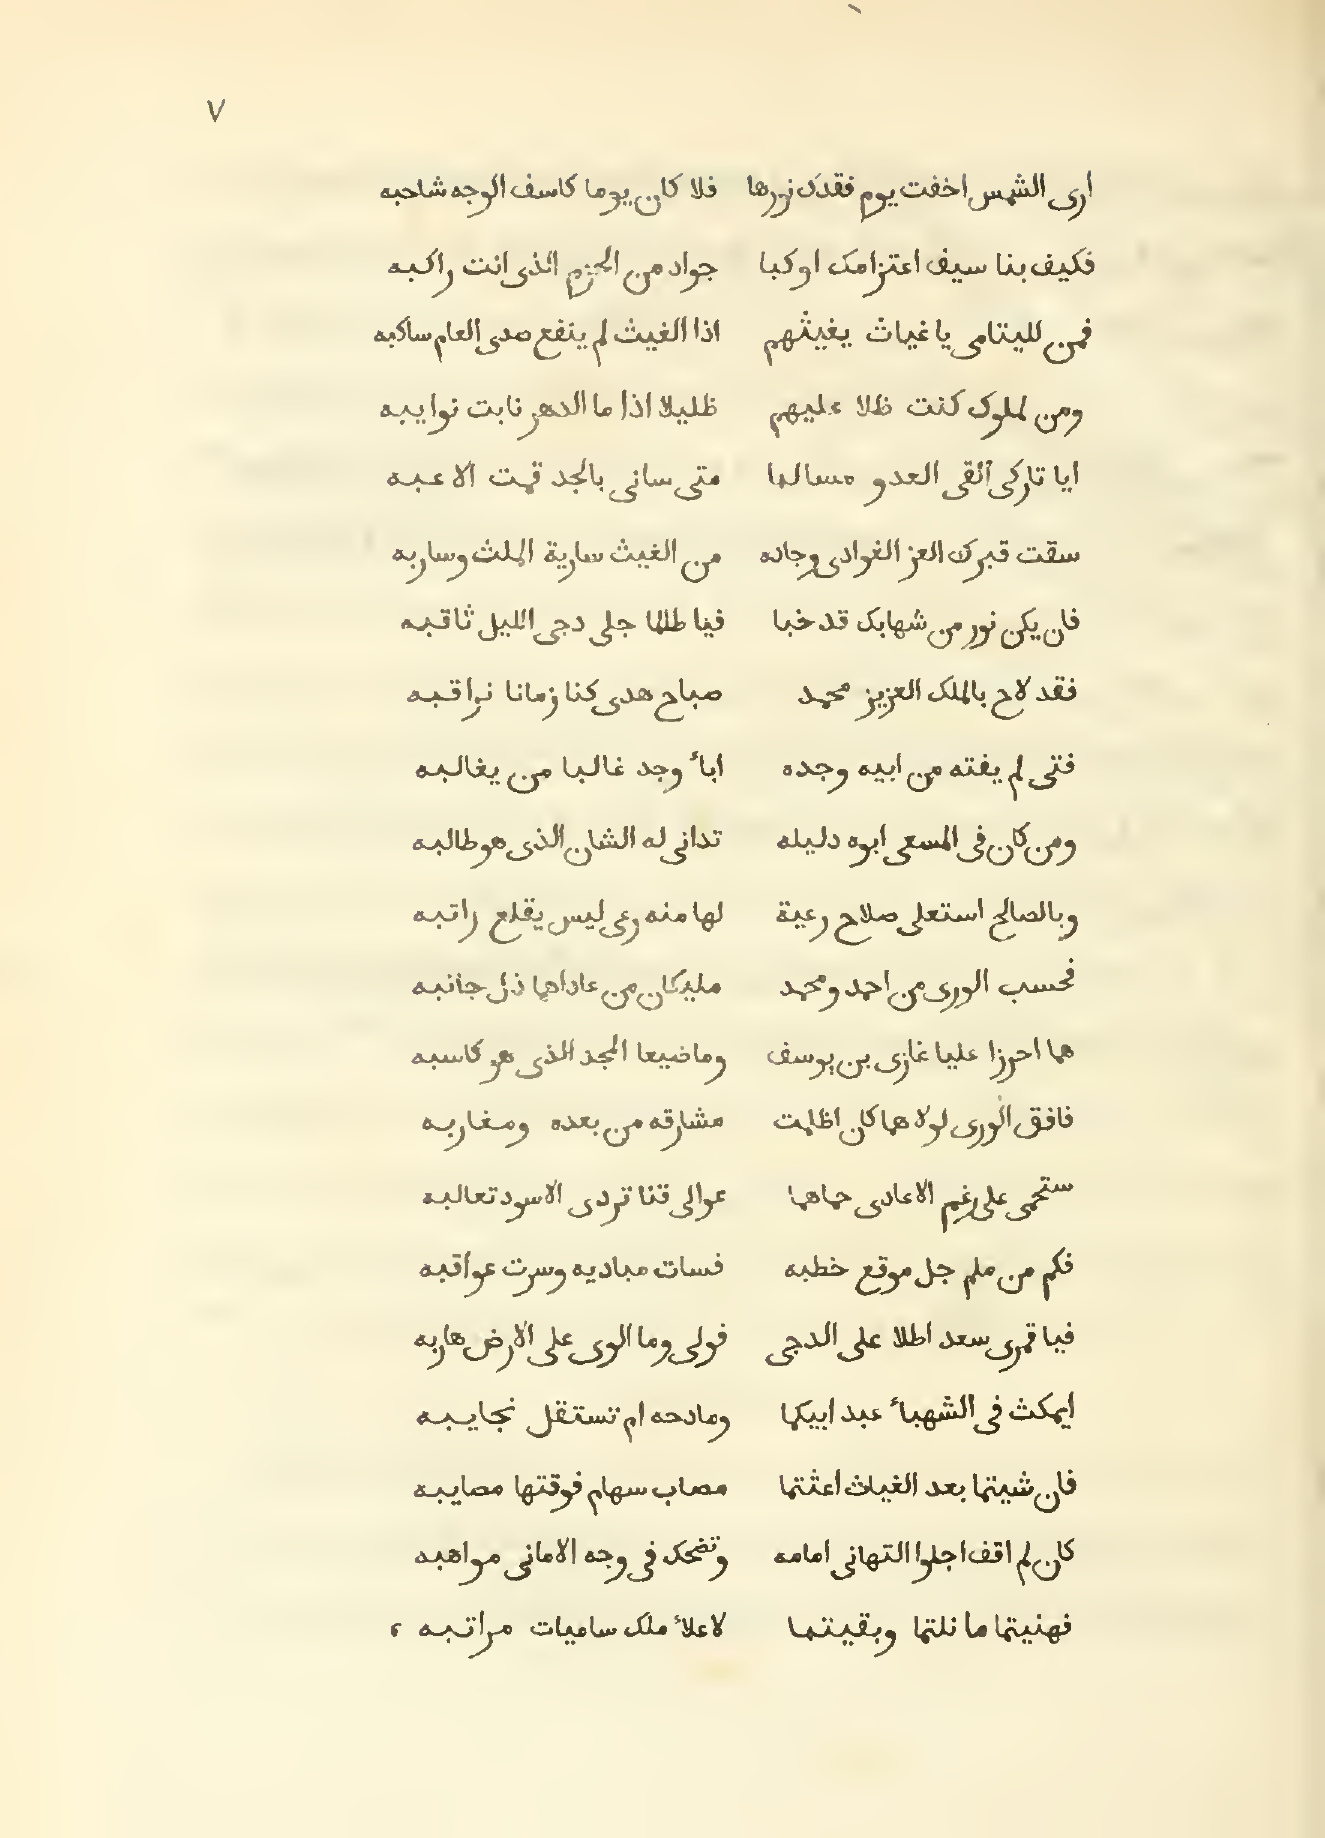 ٧
ارى الشمس اخفت يوم فقدك نورها فلا كان يوما كاسف الوجه شاحبه
فكيف بنا سيف اعتزامك اوكبا جواد من الحزم الذى انت راكبه
فمن لليتامى ياغياث يغيثهم اذا الغيث لم ينفع صدى العام ساكبه
ومن لملوك كنت ظلا عليهم ظليلا اذا ما الدهر نابت نوايبه
ايا تاركى القى العدو مسالما متى سانى بالجد قمت الاعبه
سقت قبرك العز الغوادى وجاده من الغيث سارية الملث وساربه
فان يكن نور من شهابك قد خبا فيا طالما جلى دجى الليل ثاقبه
فقد لاح بالملك العزيز محمد صباح هدى كنا زمانا نراقبه
فتى لم يفته من ابيه وجده اباء وجد غالبا من يغالبه
ومن كان فى المسعى ابوه دليله تدانى له الشان الذى هو طالبه
وبالصالح استعلى صلاح رعية لها منه رعى ليس يقلع راتبه
فحسب الورى من احمد ومحمد مليكان من عاداهما ذل جانبه
هما احرزا عليا غازى بن يوسف وما ضيعا المجد الذى هو كاسبه
فافق الورى لولا هما كان اظلمت مشارقه من بعده ومغاربه
ستحمى على رغم الاعادى حماهما عوالى قنا تردى الاسود تعالبه
فكم من ملم جل موقع خطبه فسات مباديه وسرت عواقبه
فيا قمرى سعد اطلا على الدجى فولى وما الوى على الارض هاربه
ايمكث فى الشهباء عبد ابيكما ومادحه ام تستقل نجايبه
فان شيتما بعد الغياث اغثتما مصاب سهام فوقتها مصايبه
كان لم اقف اجلوا التهانى امامه وتضحك فى وجه الامانى مواهبه
فهنيتما ما نلتما وبقيتما لاعلاء ملك ساميات مراتبه